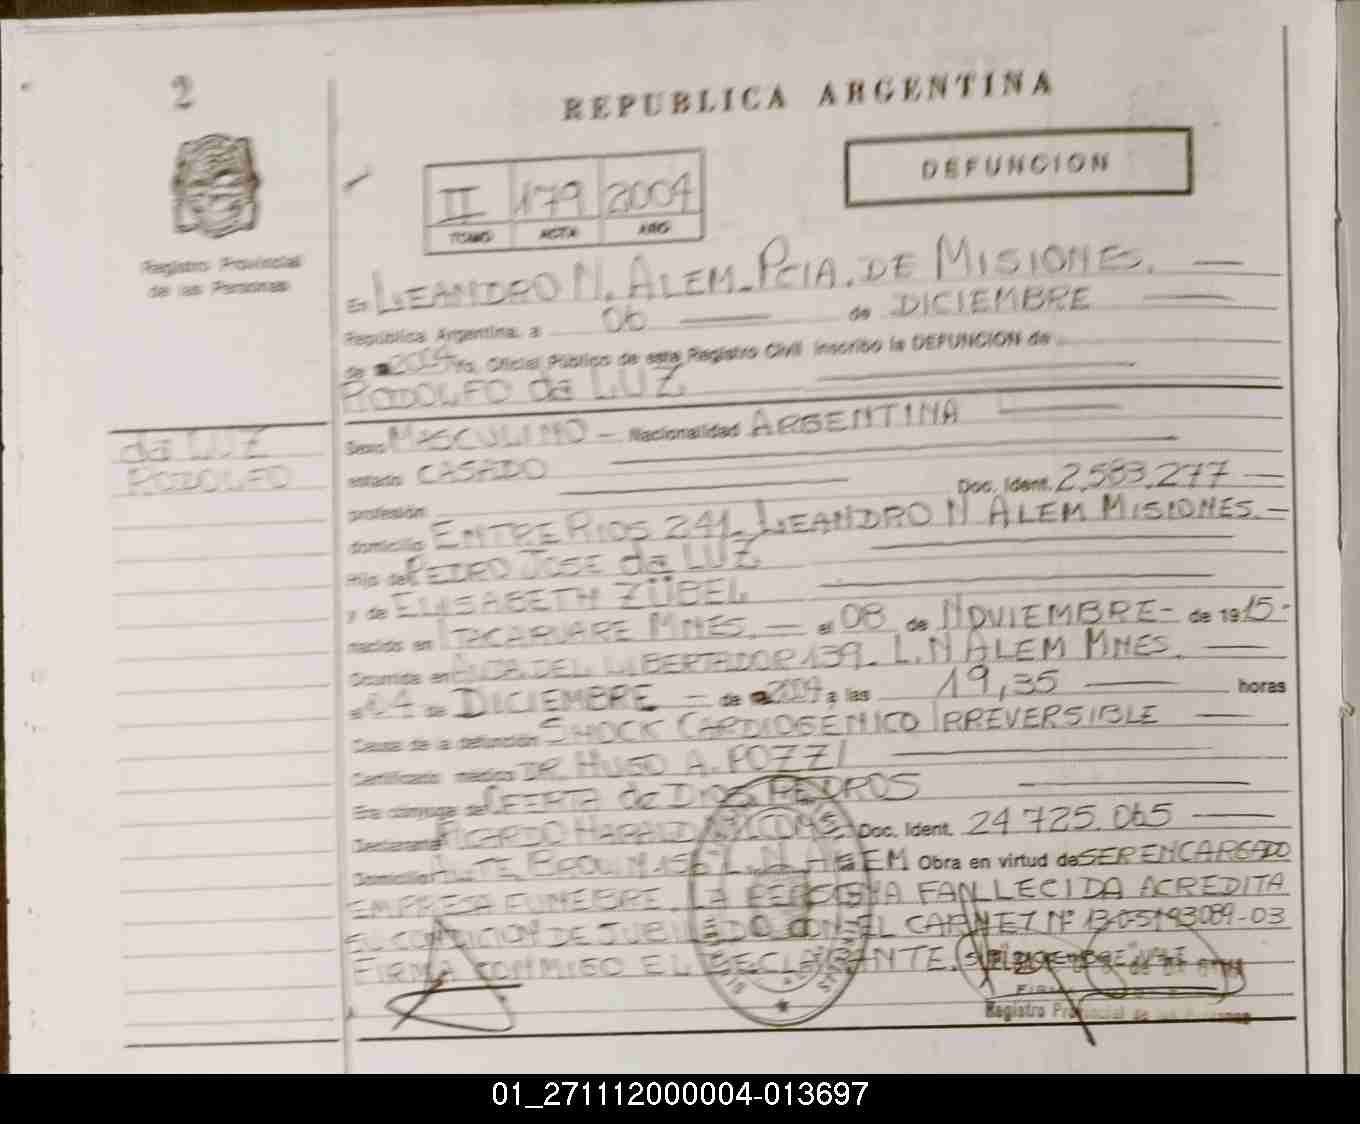 2
REPUBLICA ARGENTINA
DEFUNCION
II 179 2004
TOMO ACTA AÑO
Registro Provincial
de las Personas
En LEANDRO N. ALEM - PCIA. DE MISIONES.
República Argentina, a 06 de DICIEMBRE
de 2004 Yo, Oficial Público de este Registro Civil inscribo la DEFUNCION de
RODOLFO da LUZ
da LUZ
RODOLFO
Sexo MASCULINO - Nacionalidad ARGENTINA
estado CASADO
profesión Doc. Ident. 2.583.277
domicilio ENTRE RIOS 241 - LEANDRO N ALEM MISIONES. -
Hijo de PEDRO JOSE da LUZ
y de ELISABETH ZÜBEL
nacido en ITACARUARE MNES. - el 08 de NOVIEMBRE - de 1915 -
Ocurrida en AVDA DEL LIBERTADOR 139 - L.N ALEM MNES.
el 04 de DICIEMBRE - de 2004 a las 19,35 horas
Causa de la defunción SHOCK CARDIOGENICO IRREVERSIBLE
Certificado médico DR. HUGO A. POZZI
Era cónyuge de BERTA de DIOS PEDROS
Declarante RICARDO HARALD Doc. Ident. 24 725.065
Domicilio ALTE BROWN 156 L.N ALEM Obra en virtud de SER ENCARGADO
EMPRESA FUNEBRE. LA PERSONA FALLECIDA ACREDITA
SU CONDICION DE JUBILADO CON EL CARNET Nº 1305193089-03
FIRMA CONMIGO EL DECLARANTE.
Registro Provincial de las Personas
01_271112000004-013697